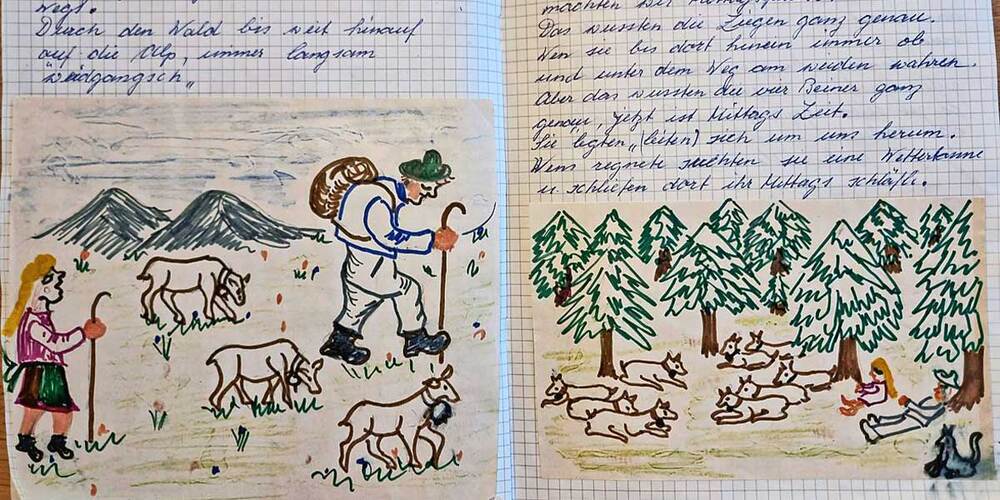 wegs.
Durch den Wald bis weit hinauf
auf die Alp, immer langsam
"weidgangsch"
machten wir
Das wussten die Ziegen ganz genau.
Wen sie bis dort hinein immer ob
und unter dem Weg am weiden wahren.
Aber das wussten die vier Beiner ganz
genau, jetzt ist Mittags Zeit.
Sie legten „(leiten) sich um uns herum.
Wens regnete suchten sie eine Wettertanne
u. schliefen dort ihr Mittags schläfli.